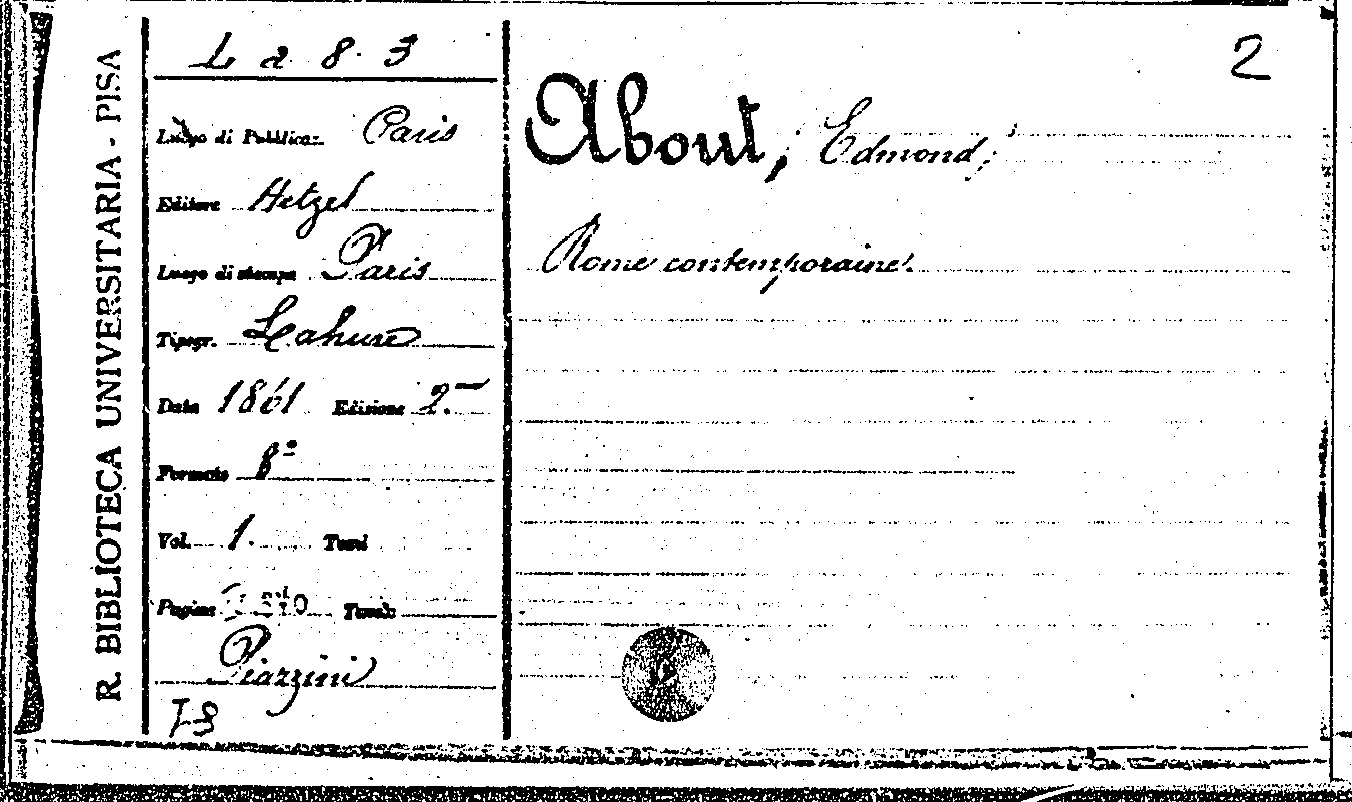 R. BIBLIOTECA UNIVERSITARIA - PISA
L a 8. 3
Luogo di Pubblicaz. Paris
Editore Hetzel
Luogo di stampa Paris
Tipogr. Lahure
Data 1861 Edizione 2.
Formato 8º
Vol. 1. Tomi
Pagine Tavole
Piazzini
2
About, Edmond,
Rome contemporaine.